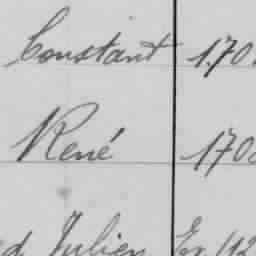 Constant 1.70
René 170
Julien